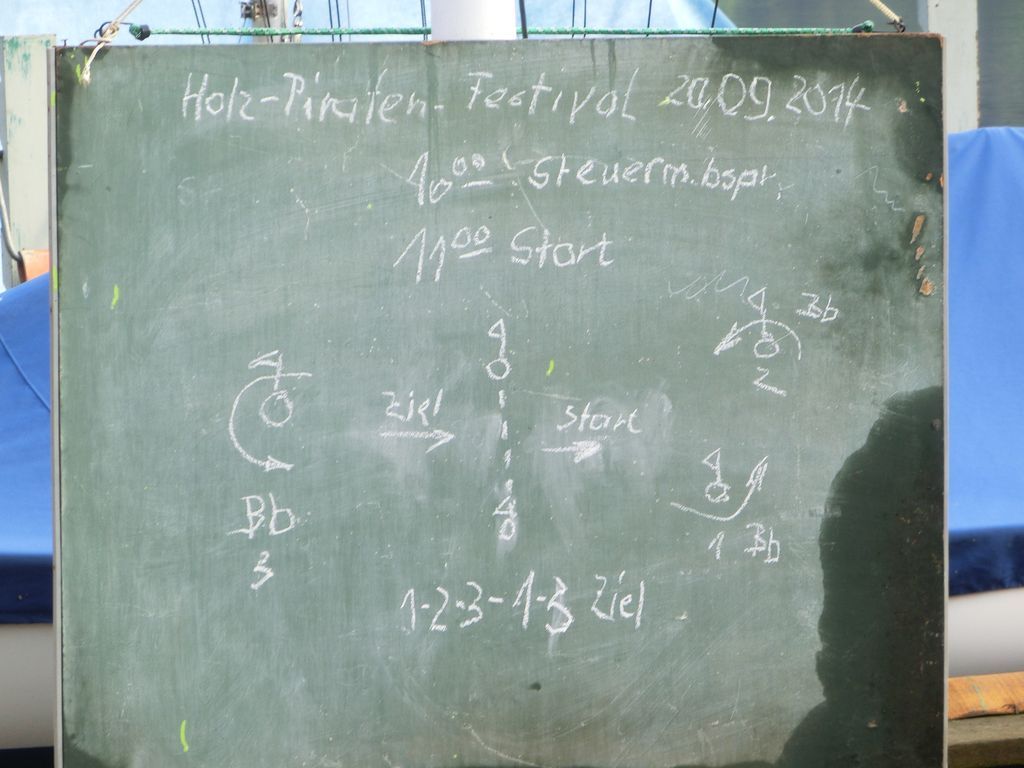 Holz-Piraten-Festival 20.09.2014
10⁰⁰ Steuerm.bspr.
11⁰⁰ Start
Bb
2
Ziel
Start
Bb
3
1 Bb
1-2-3-1-3 Ziel